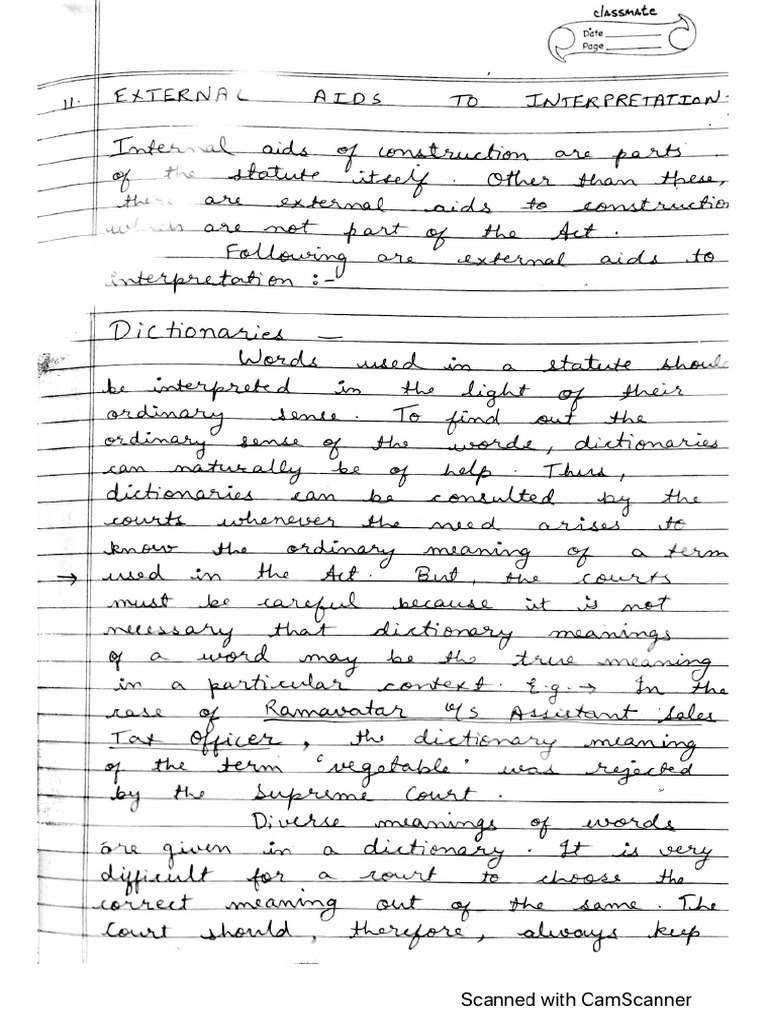 classmate
Date
Page
11. EXTERNAL AIDS TO INTERPRETATION
Internal aids of construction are parts
of the statute itself. Other than these,
there are external aids to construction
which are not part of the Act.
Following are external aids to
interpretation :-
Dictionaries —
Words used in a statute should
be interpreted in the light of their
ordinary sense. To find out the
ordinary sense of the words, dictionaries
can naturally be of help. Thus,
dictionaries can be consulted by the
courts whenever the need arises to
know the ordinary meaning of a term
→ used in the Act. But, the courts
must be careful because it is not
necessary that dictionary meanings
of a word may be the true meaning
in a particular context. E.g. → In the
case of Ramavatar v/s Assistant Sales
Tax Officer, the dictionary meaning
of the term 'vegetable' was rejected
by the Supreme Court.
Diverse meanings of words
are given in a dictionary. It is very
difficult for a court to choose the
correct meaning out of the same. The
Court should, therefore, always keep
Scanned with CamScanner